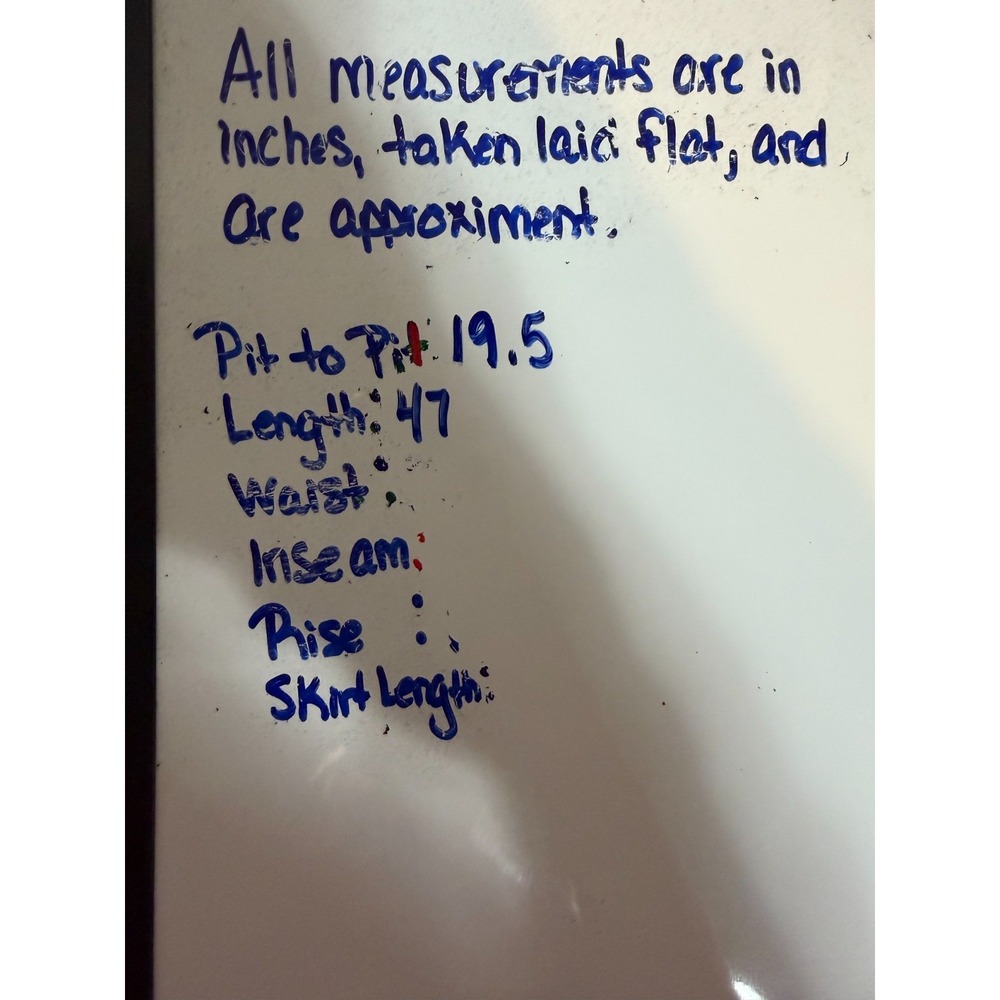 All measurements are in
inches, taken laid flat, and
are approximent.
Pit to Pit: 19.5
Length: 47
Waist:
Inseam:
Rise :
Skirt Length: